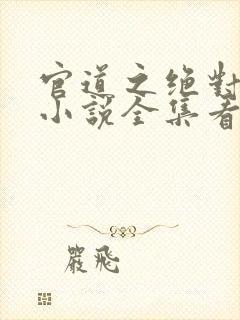 官道之绝对
小說全集看
嚴飛